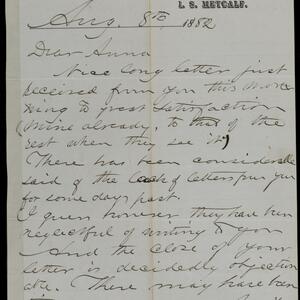 L. S. METCALF.
Aug. 8th, 1882
Dear Anna
Nice long letter just
received from you this morn
ing to great satisfaction
(mine already, to that of the
rest when they see it)
There has been considerable
said of the lack of letters from you
for some days past.
I guess however they have been
neglectful of writing to you
And the close of your
letter is decidedly objection
able. There may have been